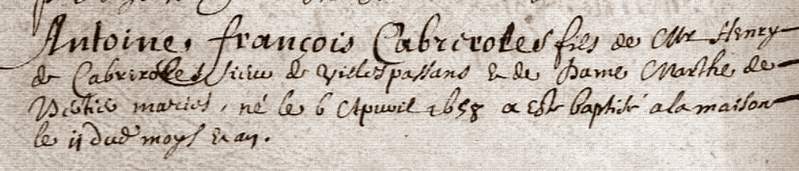 Antoine, françois Cabreroles fils de Mr Henry
de Cabreroles sieur de Villespassans & de Dame Marthe de
mariés, né le 6 Apvril 1658 a esté baptisé a la maison
le ij dud moys & an.